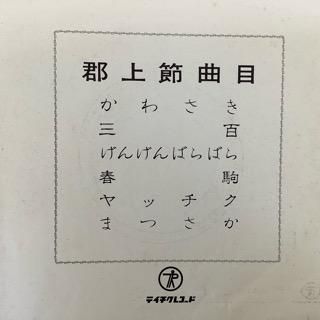 郡上節曲目
かわさき
三百
げんげんばらばら
春駒
ヤッチク
まつさか
テイチクレコード